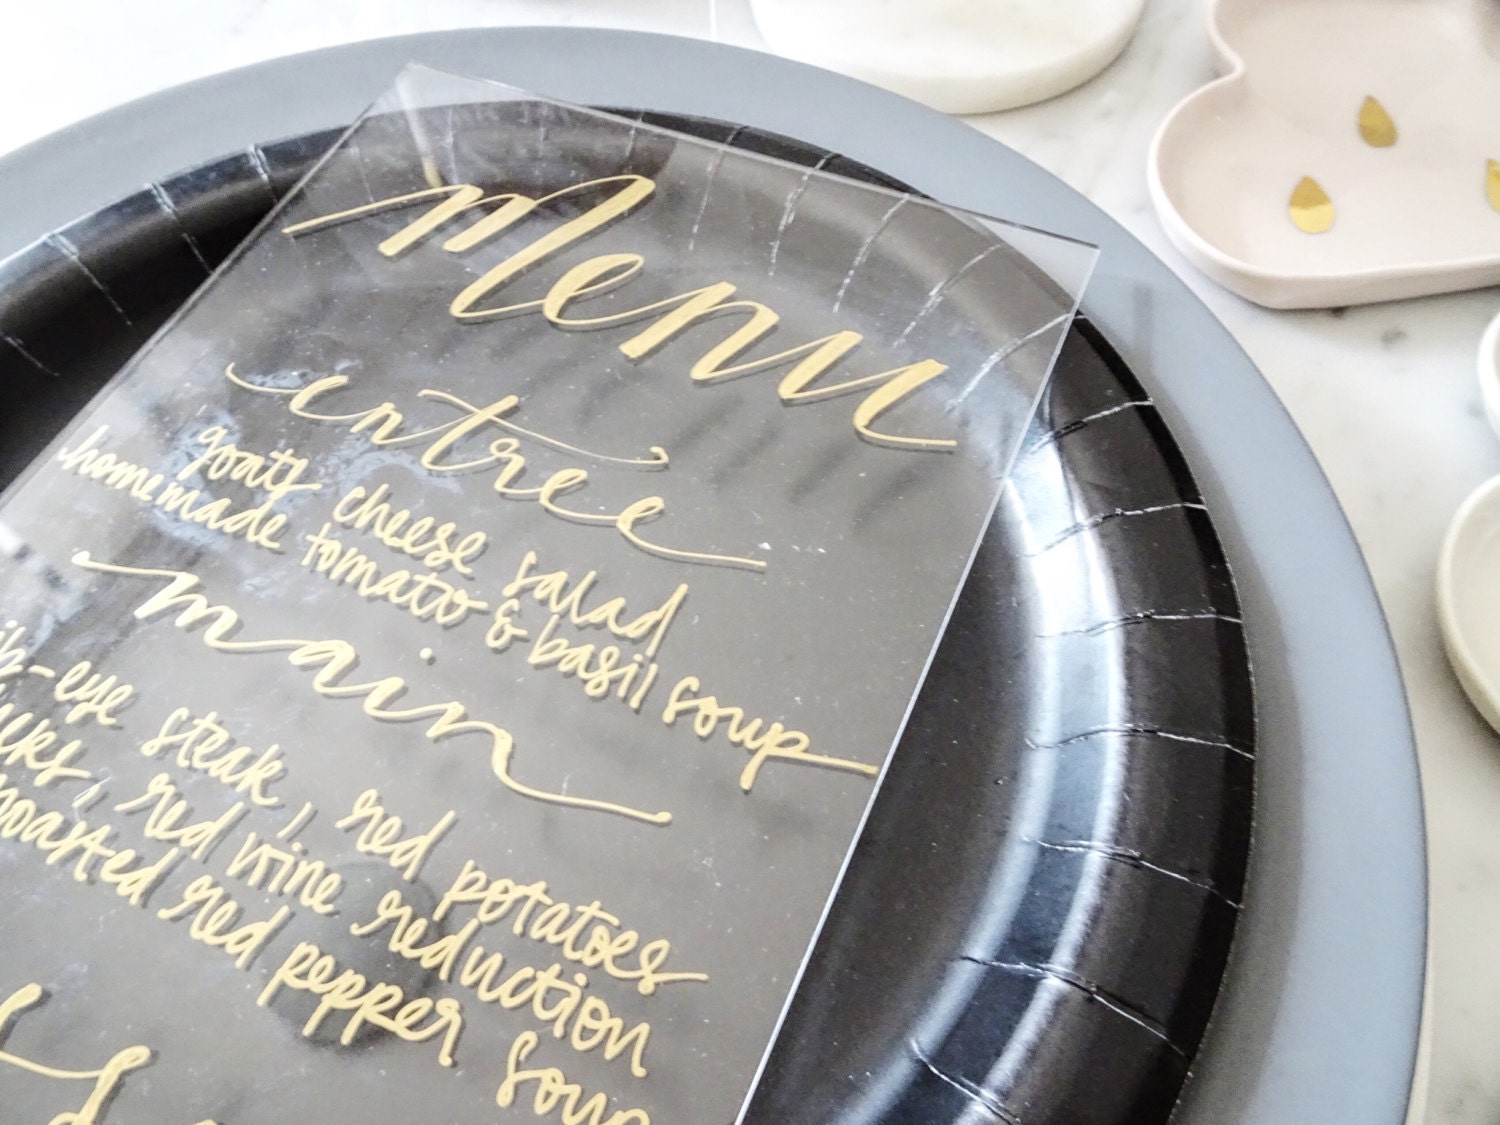 Menu
entrée
goats cheese salad
homemade tomato & basil soup
main
rib-eye steak, red potatoes
red wine reduction
roasted red pepper soup